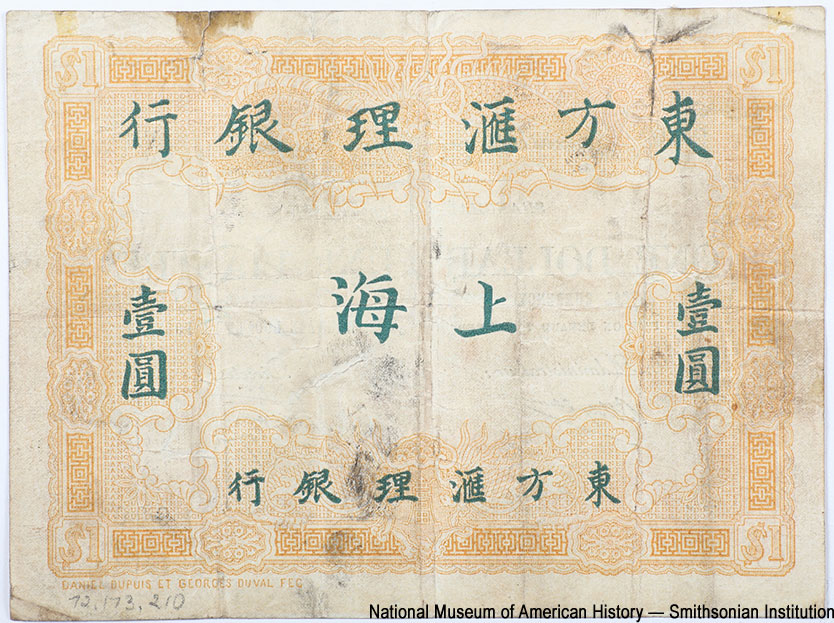 $1 $1
東方滙理銀行
上海
壹圓
壹圓
東方滙理銀行
$1 $1
DANIEL DUPUIS ET GEORGES DUVAL FEC
72,173,210
National Museum of American History — Smithsonian Institution